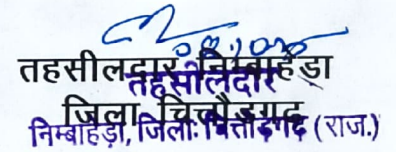 तहसीलदार निम्बाहेड़ा
तहसीलदार
जिला चित्तौड़गढ़
निम्बाहेड़ा, जिला: चित्तौड़गढ़ (राज.)